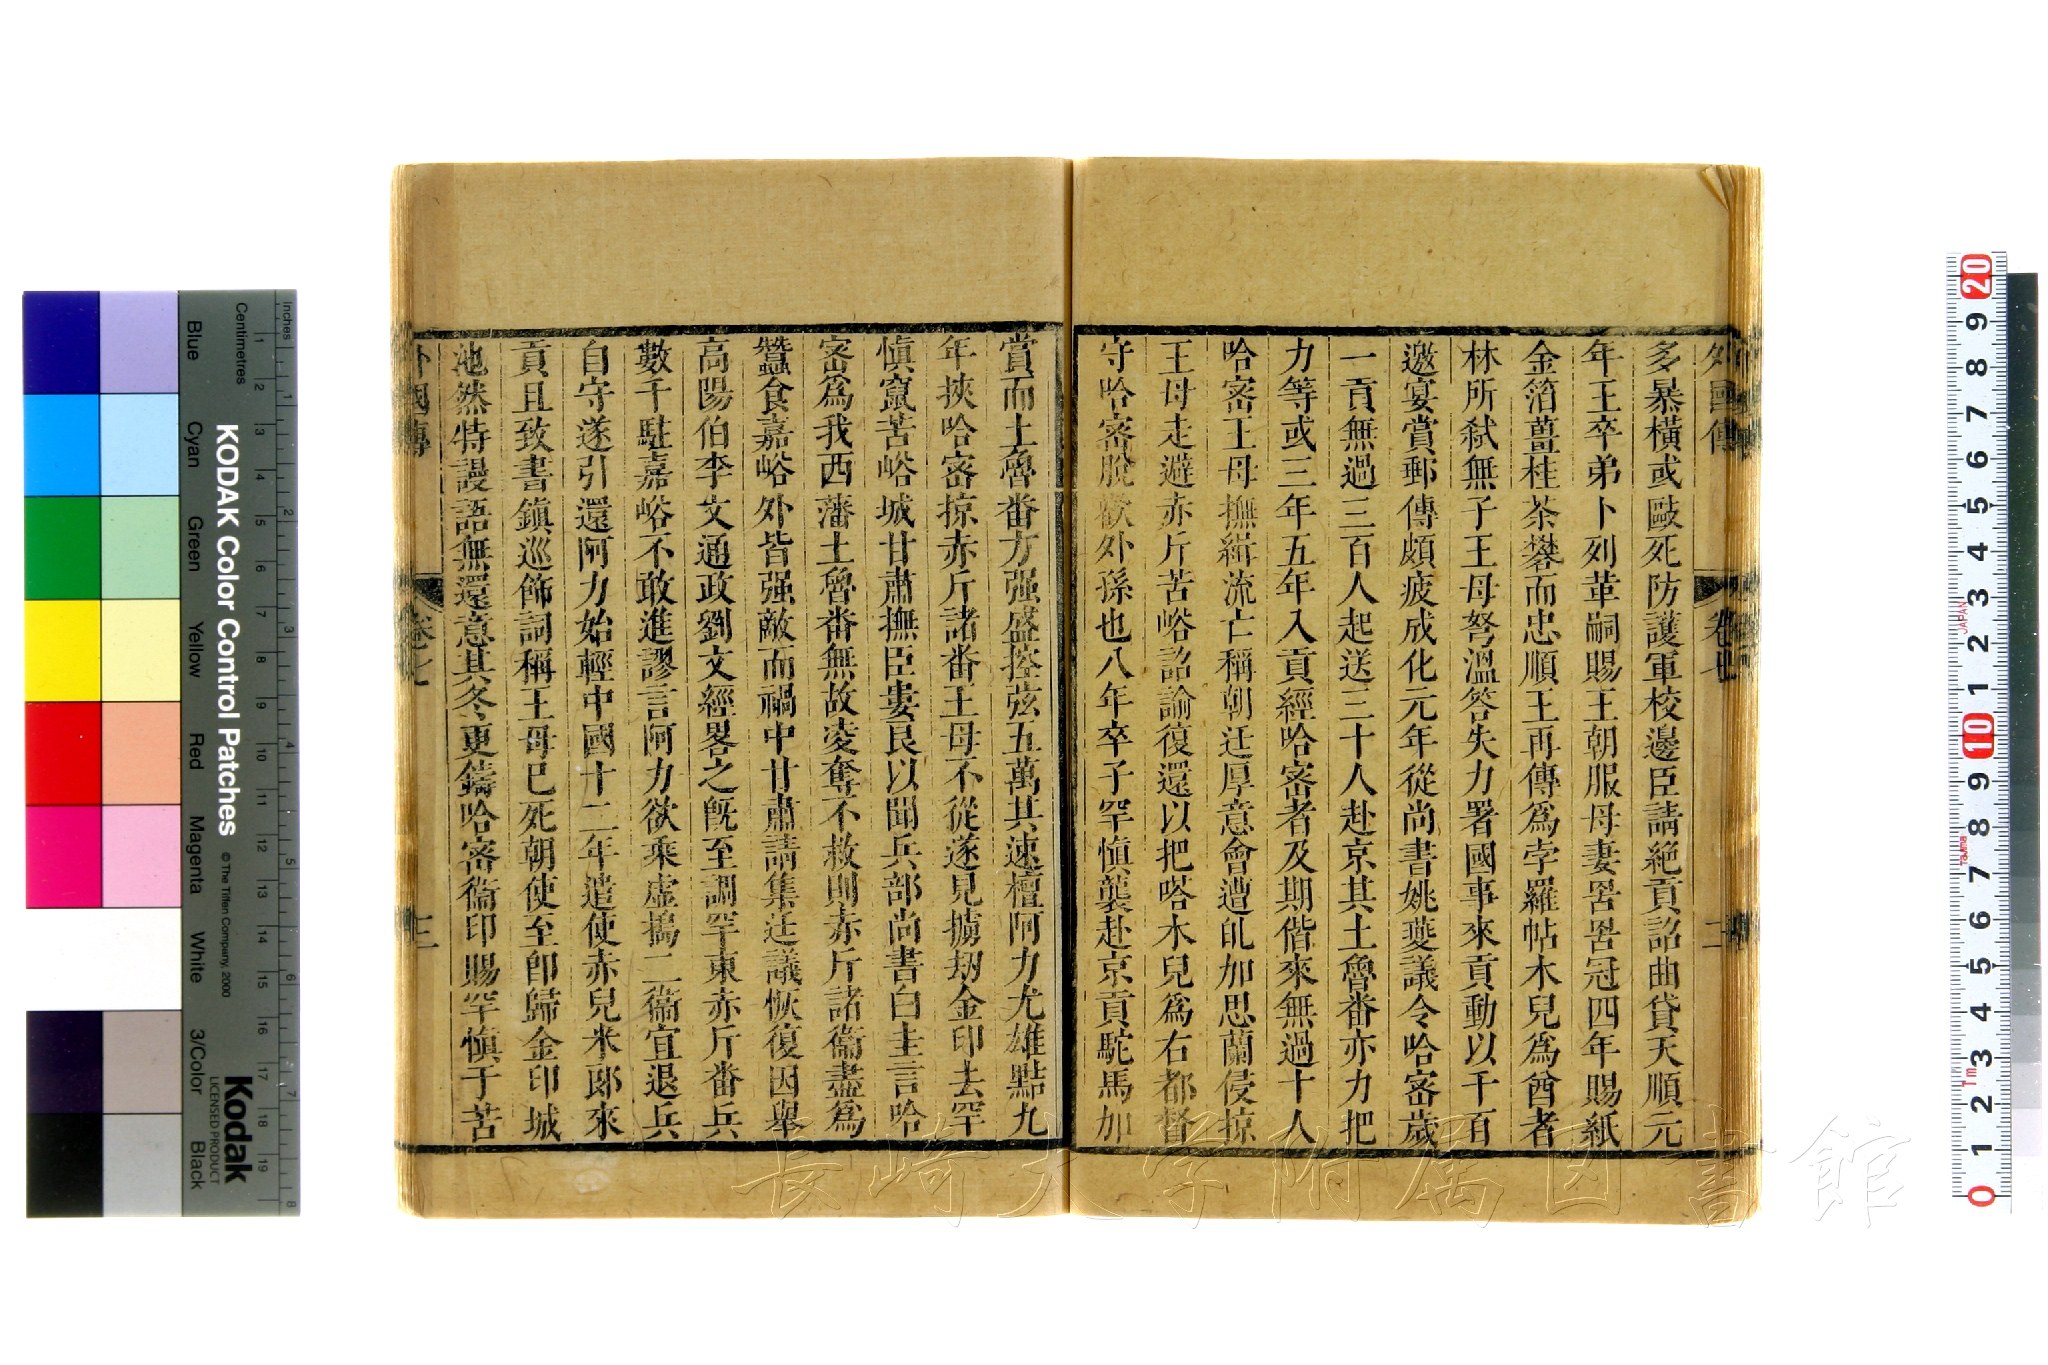 外國傳 卷七
多暴橫或毆死防護軍校邊臣請絕貢詔曲貸天順元
年王卒弟卜列革嗣賜王朝服母妻罟罟冠四年賜紙
金箔薑桂茶礬而忠順王再傳爲孛羅帖木兒爲酋者
林所弒無子王母弩溫答失力署國事來貢動以千百
邀宴賞郵傳頗疲成化元年從尚書姚夔議令哈密歲
一貢無過三百人起送三十人赴京其土魯番亦力把
力等或三年五年入貢經哈密者及期偕來無過十人
哈密王母撫緝流亡稱朝廷厚意會遭癿加思蘭侵掠
王母走避赤斤苦峪詔諭復還以把嗒木兒爲右都督
守哈密脫歡外孫也八年卒子罕慎襲赴京貢駝馬加
賞而土魯番方强盛控弦五萬其速檀阿力尤雄黠九
年挾哈密掠赤斤諸番王母不從遂見擄刼金印去罕
慎竄苦峪城甘肅撫臣婁良以聞兵部尚書白圭言哈
密爲我西藩土魯番無故凌奪不救則赤斤諸衞盡爲
蠶食嘉峪外皆强敵而禍中甘肅請集廷議恢復因舉
高陽伯李文通政劉文經畧之旣至調罕東赤斤番兵
數千駐嘉峪不敢進謬言阿力欲乘虛搗二衞宜退兵
自守遂引還阿力始輕中國十二年遣使赤兒米郎來
貢且致書鎮巡飾詞稱王母已死朝使至卽歸金印城
池然特謾語無還意其冬更鑄哈密衞印賜罕慎于苦
外國傳 卷七 十二
長崎大学附属図書館
KODAK Color Control Patches
© The Tiffen Company, 2000
Kodak
LICENSED PRODUCT
Inches
Centimetres
Blue
Cyan
Green
Yellow
Red
Magenta
White
3/Color
Black
JAPAN
Tajima